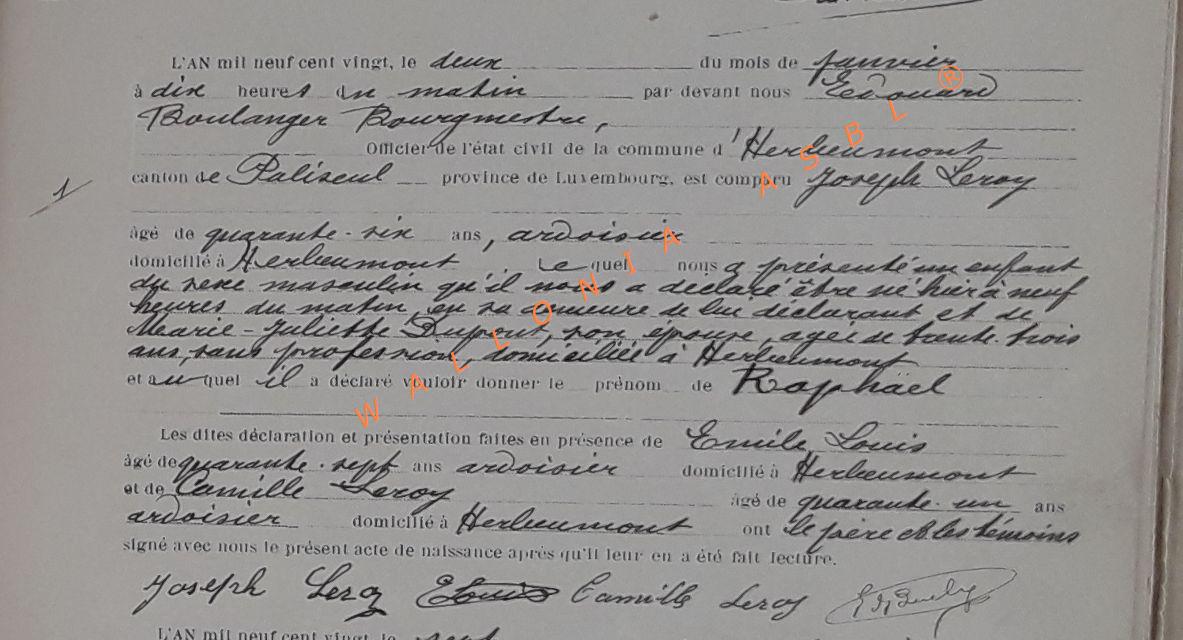 L'AN mil neuf cent vingt, le deux du mois de janvier
à dix heures du matin par devant nous Edouard
Boulanger Bourgmestre,
Officier de l'état civil de la commune d'Herbeumont
1
canton de Paliseul province de Luxembourg, est comparu Joseph Leroy
âgé de quarante-six ans, ardoisier
domicilié à Herbeumont Le quel nous a présenté un enfant
du sexe masculin qu'il nous a déclaré être né hier à neuf
heures du matin, en sa demeure de lui déclarant et de
Marie-Juliette Dupont, son épouse, agée de trente-trois
ans, sans profession, domiciliée à Herbeumont
et au quel il a déclaré vouloir donner le prénom de Raphaël
Les dites déclaration et présentation faites en présence de Emile Louis
âgé de quarante-sept ans ardoisier domicilié à Herbeumont
et de Camille Leroy âgé de quarante-un ans
ardoisier domicilié à Herbeumont ont le père et les témoins
signé avec nous le présent acte de naissance après qu'il leur en a été fait lecture.
Joseph Leroy ELouis Camille Leroy
L'AN mil neuf cent vingt, le sept
WALLONIA ASBL ®